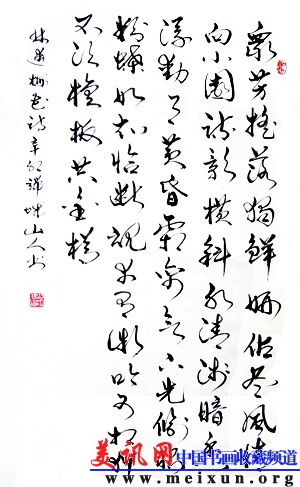 衆芳摇落獨鲜妍佔盡風情
向小園疏影横斜水清浅暗香
浮動月黄昏霜禽欲下先偷眼
粉蝶如知恰断魂幸有微吟可相狎
不须檀板共金樽
林逋梅花诗辛卯 山人书
美讯网 中国书画收藏频道
www.meixun.org